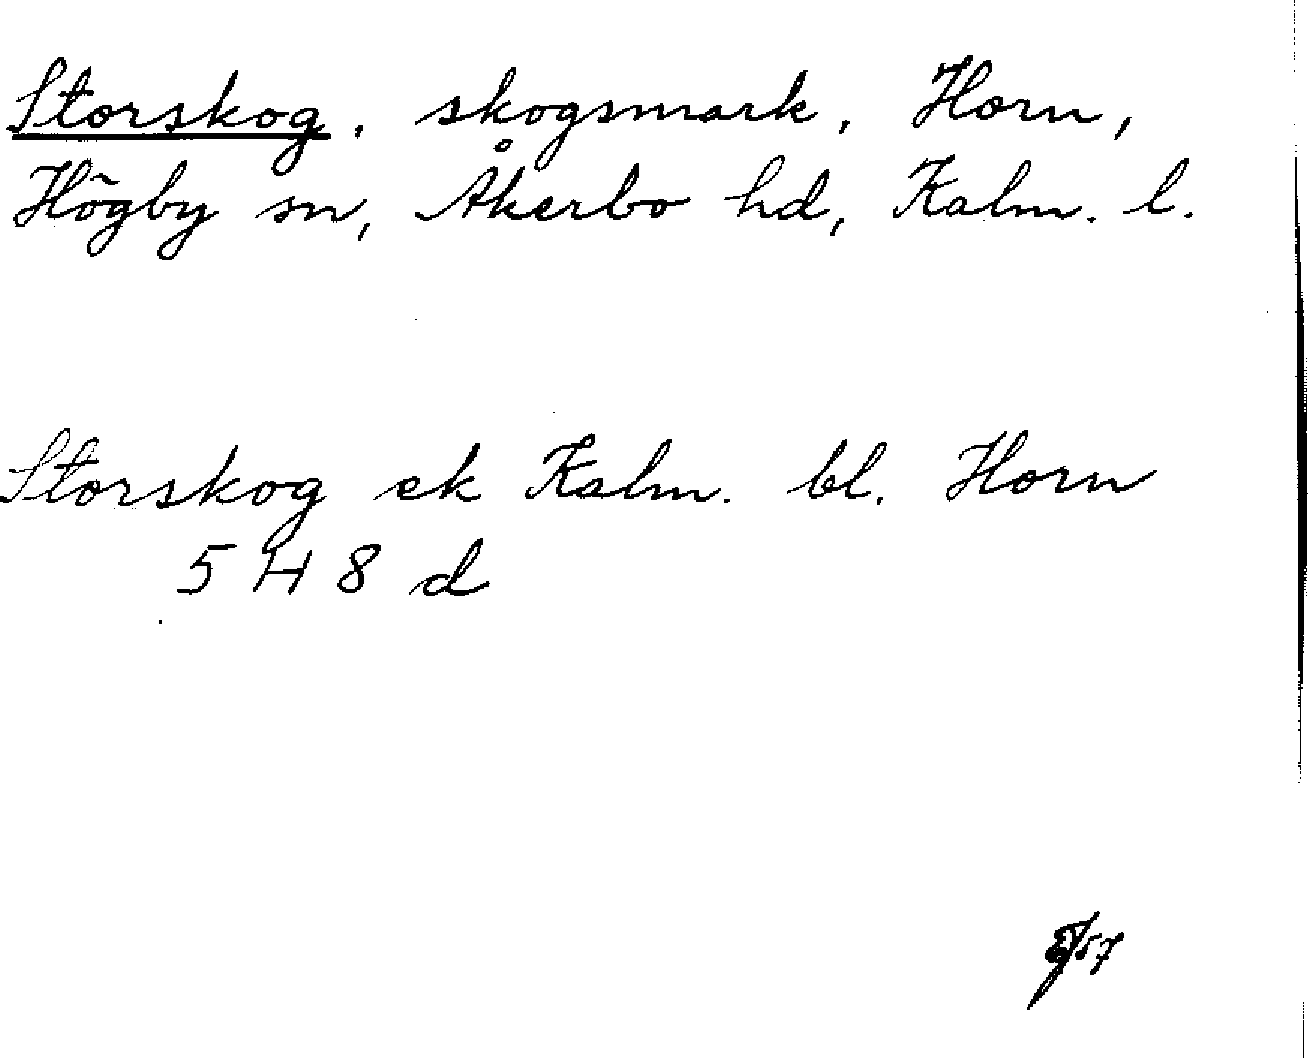 Storskog, skogsmark, Horn,
Högby sn, Åkerbo hd, Kalm. l.
Storskog ek Kalm. bl. Horn
5 H 8 d
57